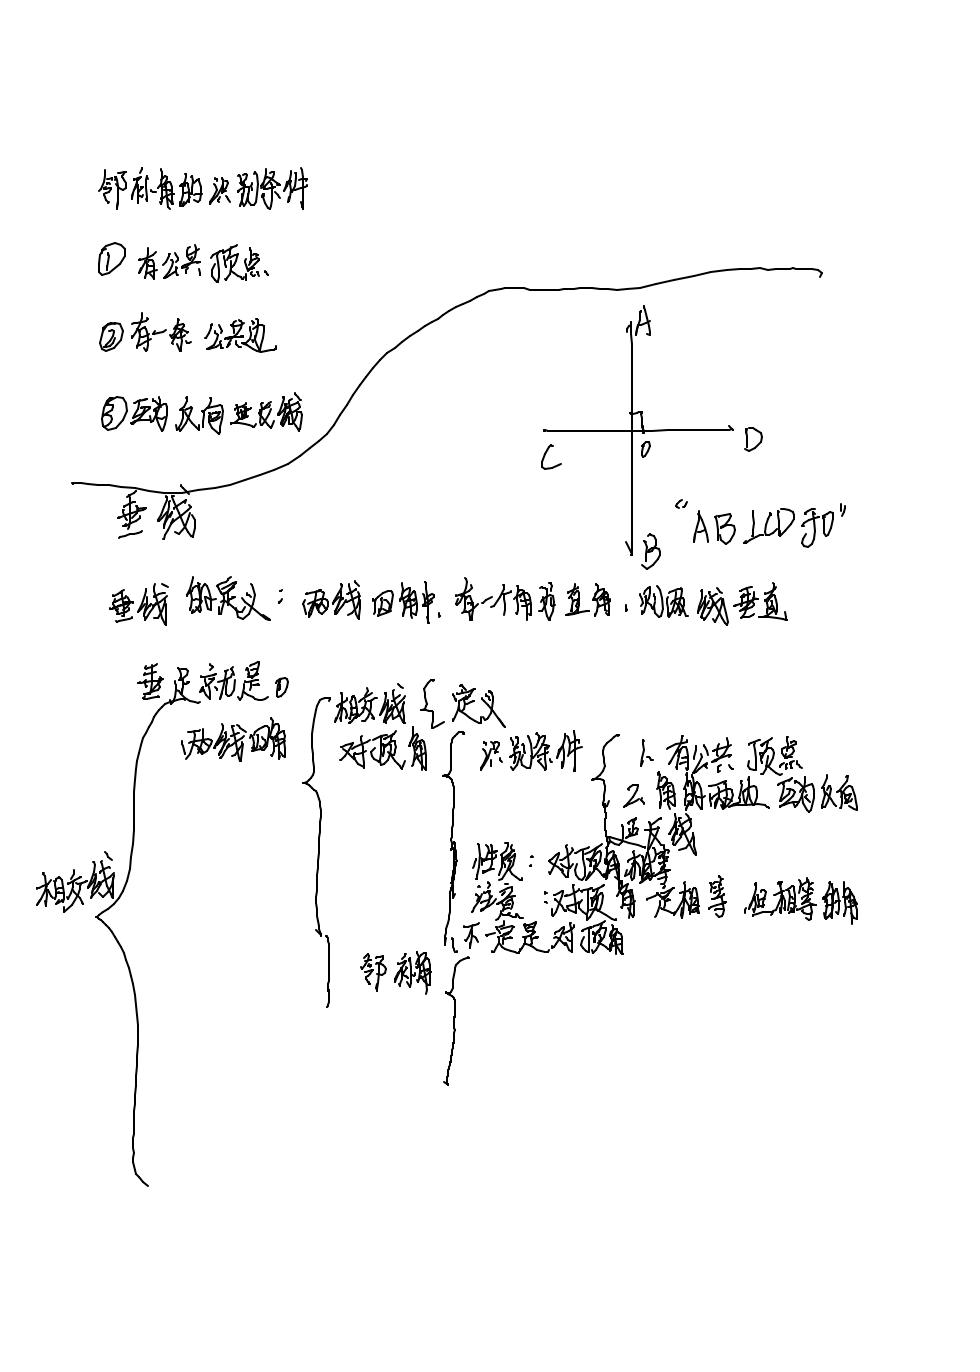 邻补角的识别条件
① 有公共顶点
② 有一条公共边
③ 互为反向延长线
A
C
O
D
B
"AB⊥CD于O"
垂线
垂线的定义：两线四角中，有一个角为直角，则两线垂直
垂足就是O
两线四角
相交线
定义
对顶角
识别条件
1、有公共顶点
2、角的两边互为反向
延长线
性质：对顶角相等
注意：对顶角一定相等，但相等的角
不一定是对顶角
相交线
邻补角